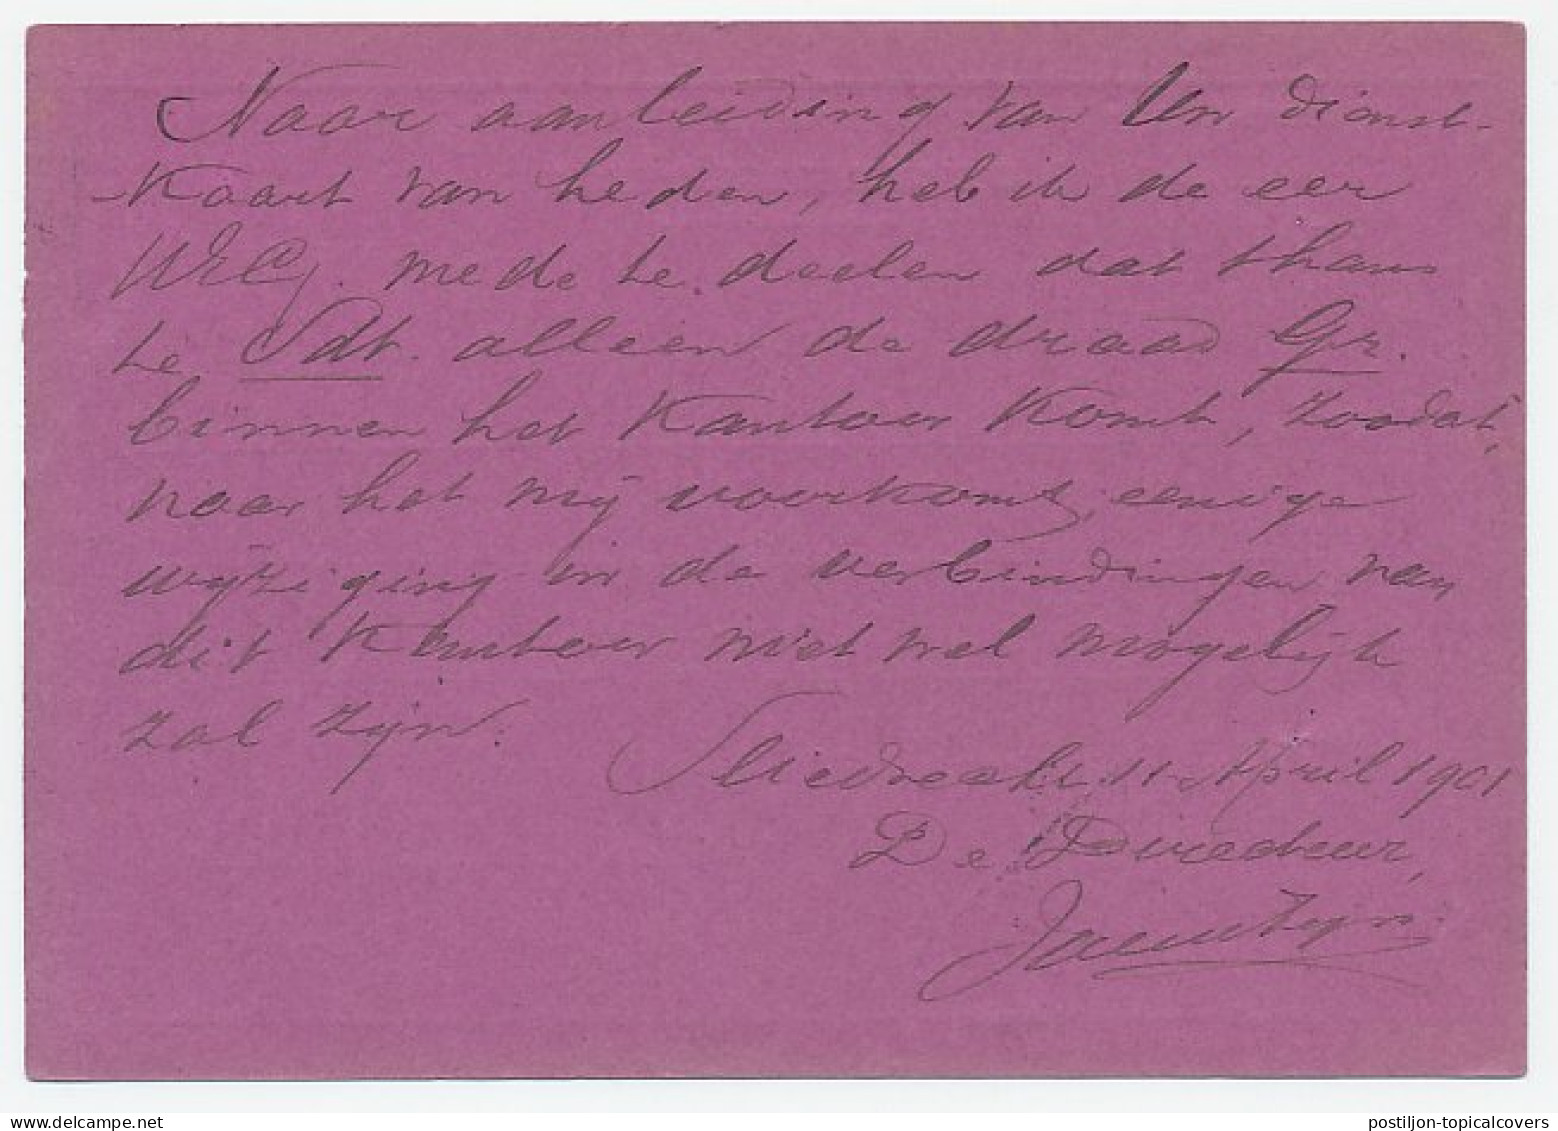 Naar aanleiding van Uw dienst-
kaart van heden, heb ik de eer
WEG. mede te deelen dat thans
te Sdt. alleen de draad Gr.
binnen het kantoor komt, zoodat,
naar het mij voorkomt, eenige
wijziging in de verbindingen van
dit kantoor niet wel mogelijk
zal zijn.
Sliedrecht 11 April 1901
De Directeur,
postiljon-topicalcovers